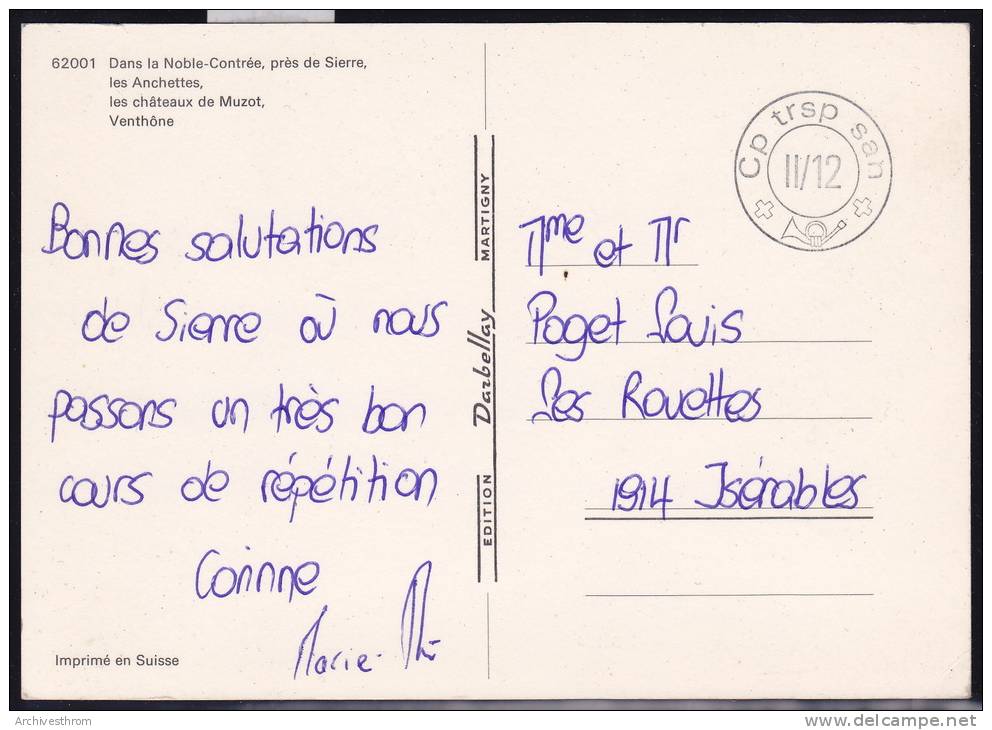 62001 Dans la Noble-Contrée, près de Sierre,
les Anchettes,
les châteaux de Muzot,
Venthône
Bonnes salutations
de Sierre où nous
passons un très bon
cours de répétition
Corinne
Marie-
Imprimé en Suisse
EDITION Darbellay MARTIGNY
Cp trsp san
II/12
Mme et Mr
Poget Louis
Les Rouettes
1914 Isérables
Archivesthrom
www.delcampe.net